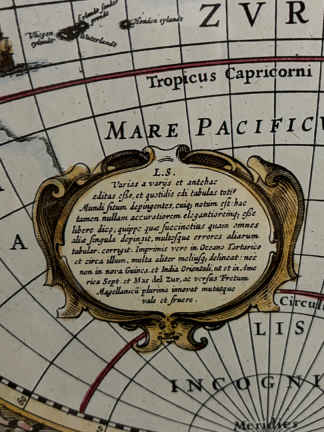 ZVR
Vliegen eylandt
Honden eylandt
Waterlandt
Tropicus Capricorni
MARE PACIFICV
A
L.S.
Varias a varys et antehac
editas esse, et quotidie edi tabulas totiꝰ
Mundi situm depingentes, cuiꝗ notum est: hac
tamen nullam accuratiorem elegantioremꝗ; esse
libere dico, quippe quæ succinctius quam omnes
aliæ singula depinxit, multosque errores aliarum
tabular. correxit. Imprimis vero in Oceano Tartarico
et circa illum, multa aliter meliusꝗ; delineat: nec
non in nova Guinea, et India Orientali, ut et in Ame
rica Sept. et Mar del Zur, ac versus Fretum
Magellanicū plurima innovat mutatque
vale et fruere.
Circul
LIS
INCOGNI
Meridies